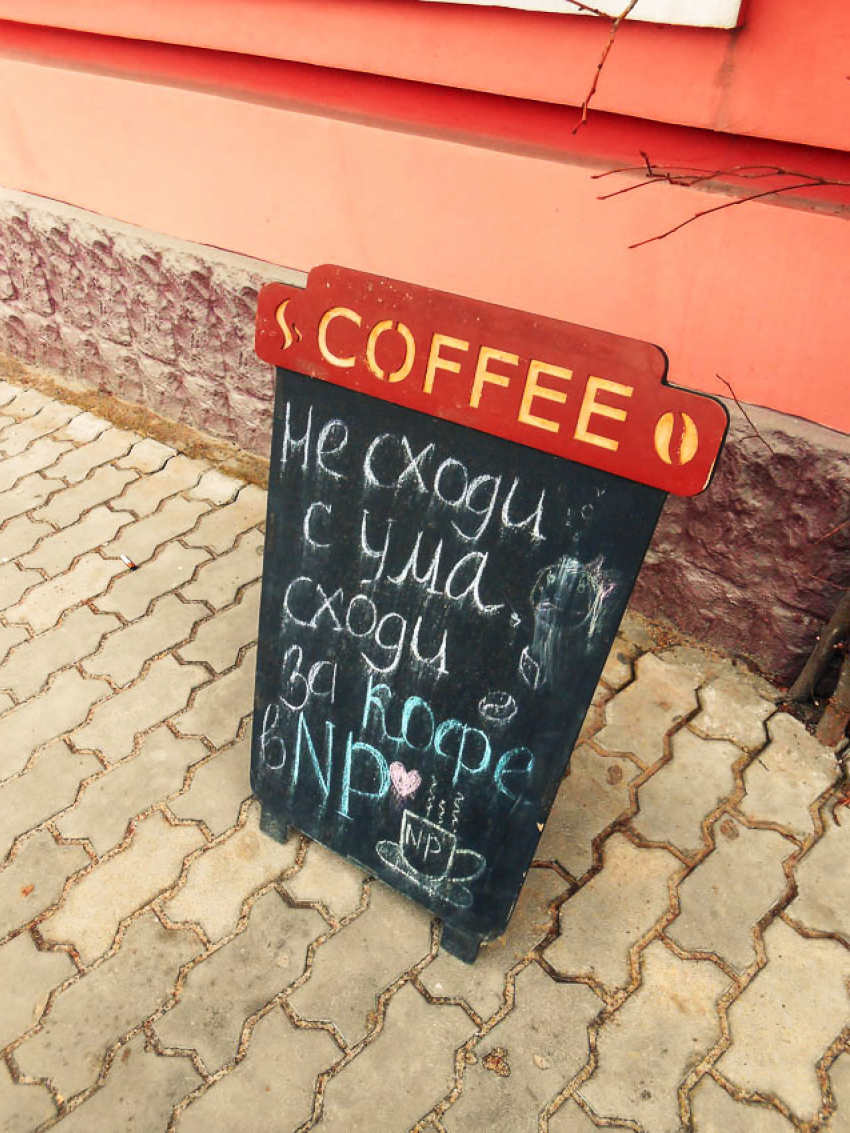 COFFEE
Не сходи
с ума,
сходи
за кофе
в NP
NP